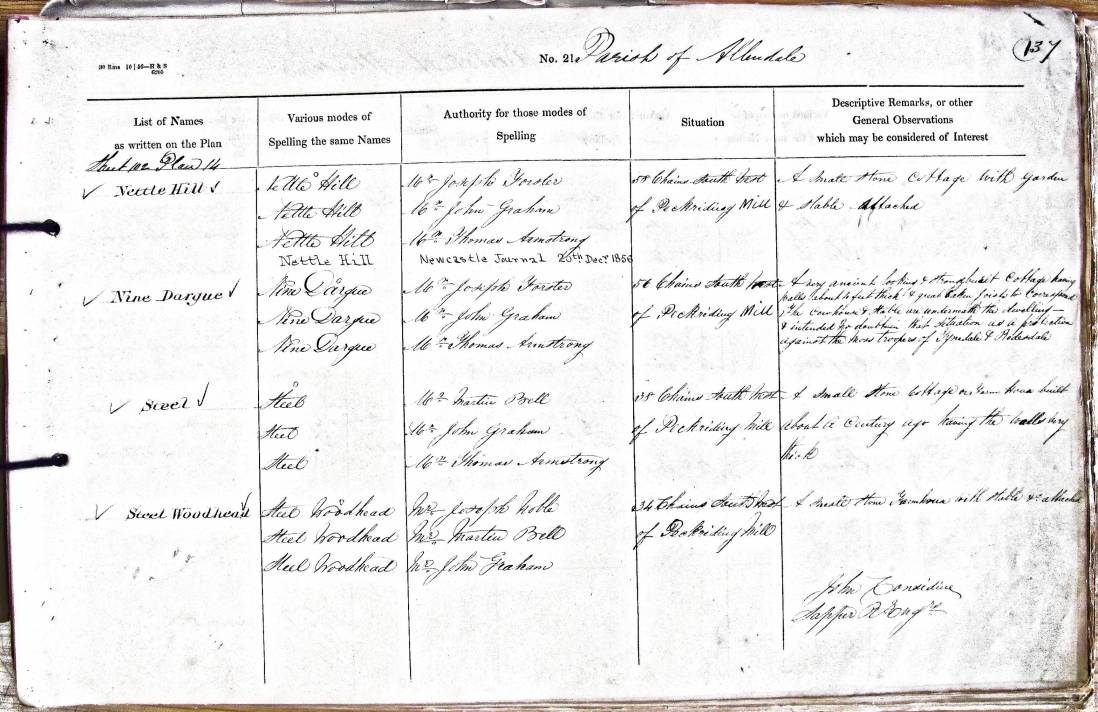 30 Rms 10|56—H & S
6295
No. 21.
Parish of Allendale
137
List of Names
as written on the Plan
Various modes of
Spelling the same Names
Authority for those modes of
Spelling
Situation
Descriptive Remarks, or other
General Observations
which may be considered of Interest
Sheet 102 Plan 14
Nettle Hill
Nettle Hill
Mr. Joseph Forster
58 Chains South West
A small stone Cottage with Garden
Nettle Hill
Mr. John Graham
of Peckriding Mill
& stable attached
Nettle Hill
Mr. Thomas Armstrong
Nettle Hill
Newcastle Journal 20th Decr. 1856
Nine Dargue
Nine Dargue
Mr. Joseph Forster
56 Chains South West
A very ancient looking & strongly built Cottage having
walls about 4 feet thick & great Oaken Joists to correspond
Nine Dargue
Mr. John Graham
of Peckriding Mill
The cowhouse & stable are underneath the dwelling
& intended no doubt in that situation as a protection
Nine Dargue
Mr. Thomas Armstrong
against the moss troopers of Tynedale & Redesdale
Steel
Steel
Mr. Martin Bell
38 Chains South West
A small Stone Cottage or Farm House built
Steel
Mr. John Graham
of Peckriding Mill
about a Century ago having the walls very
Steel
Mr. Thomas Armstrong
thick
Steel Woodhead
Steel Woodhead
Mr. Joseph Noble
34 Chains South West
A small stone Farmhouse with stable &c attached
Steel Woodhead
Mr. Martin Bell
of Peckriding Mill
Steel Woodhead
Mr. John Graham
John Considine
Sapper R Engrs